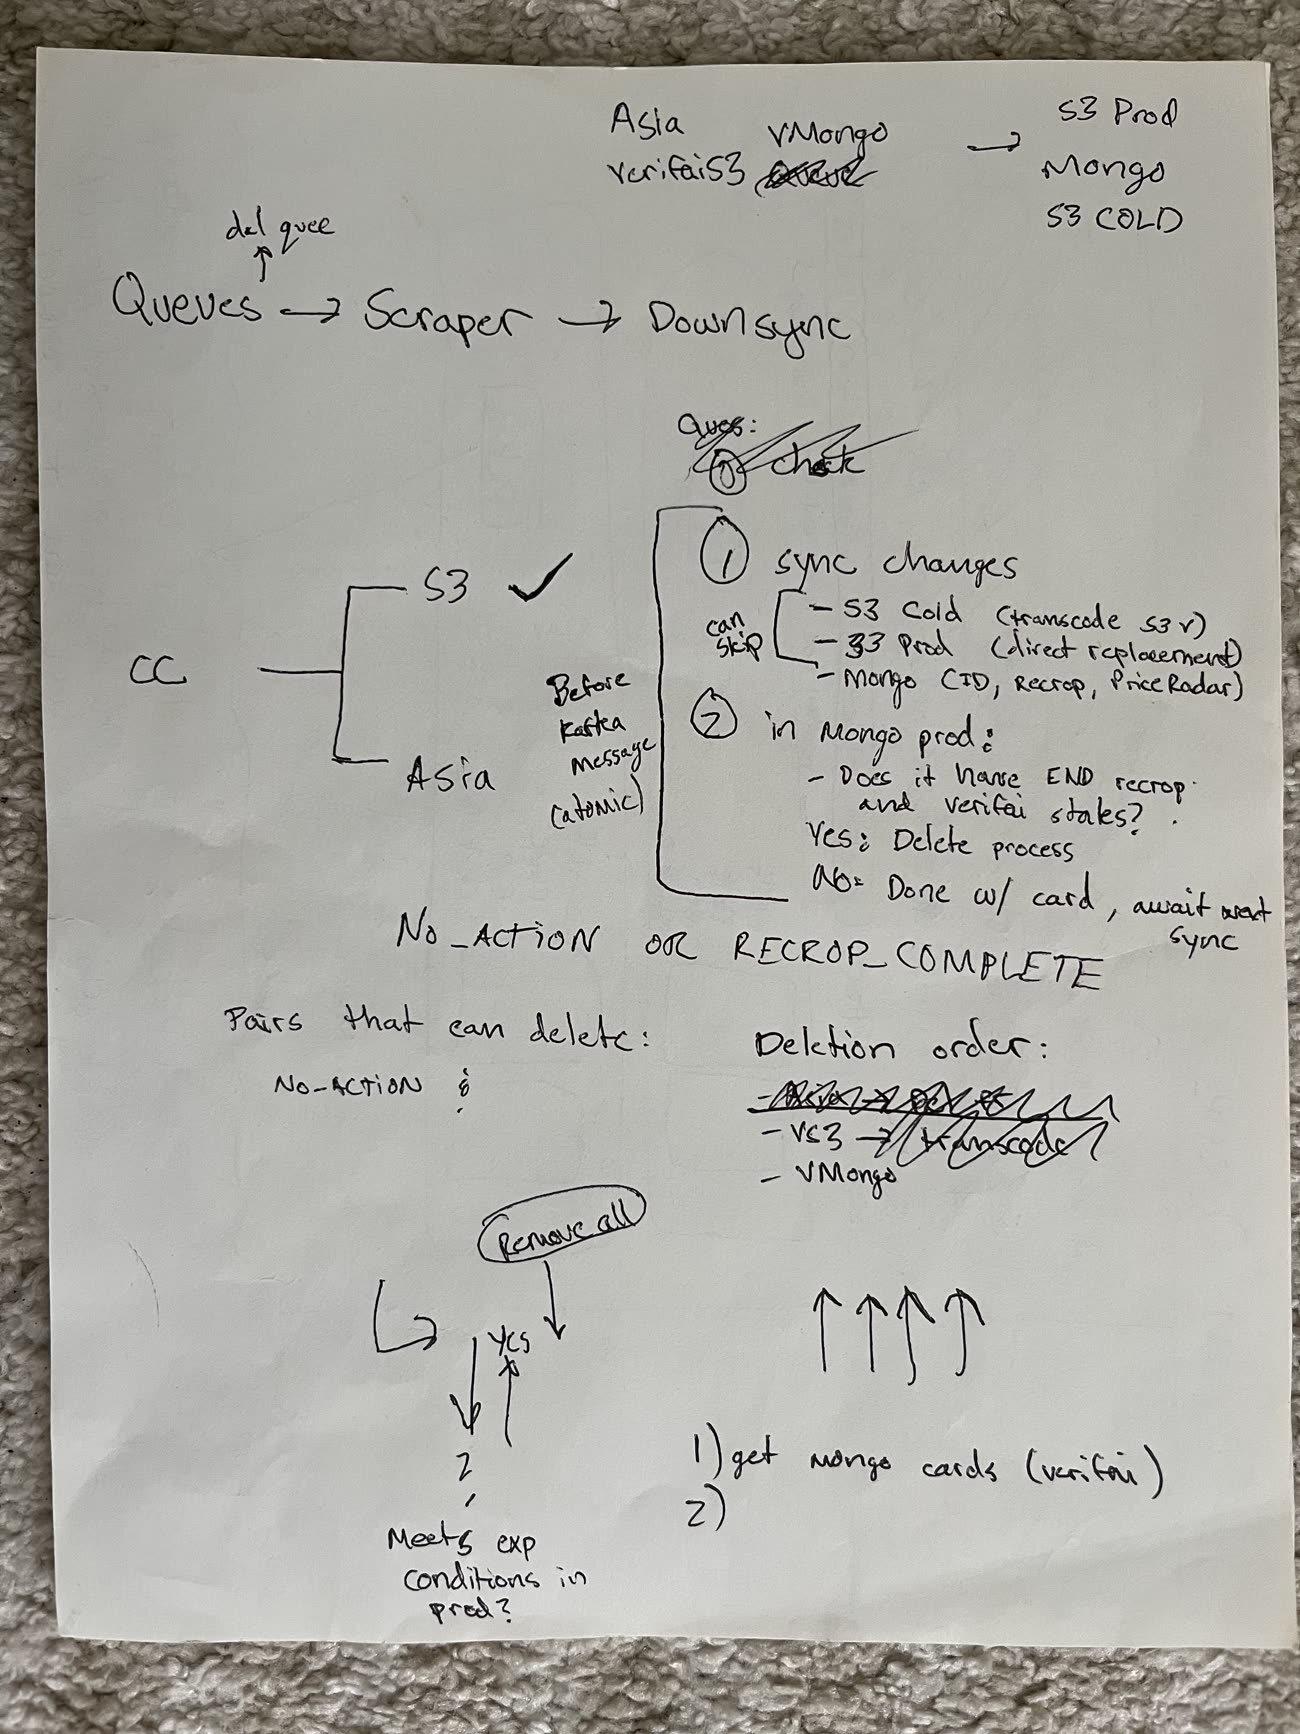 Asia vMongo → S3 Prod
verifai S3 Mongo
S3 COLD
del quee
↑
Queues → Scraper → Downsync
Ques:
0 check
1 sync changes
can skip
- S3 Cold (transcode S3 v)
- S3 Prod (direct replacement)
- Mongo CID, Recrop, PriceRadar)
CC
S3 ✓
Asia
Before
Kafka
message
(atomic)
2 in Mongo prod:
- Does it have END recrop
and verifai states?
Yes: Delete process
No: Done w/ card, await next
sync
NO_ACTION OR RECROP_COMPLETE
Pairs that can delete:
NO_ACTION :
Deletion order:
- VS3 → transcode
- VMongo
Remove all
Yes
2
Meets exp
conditions in
prod?
↑ ↑ ↑ ↑
1) get mongo cards (verifai)
2)